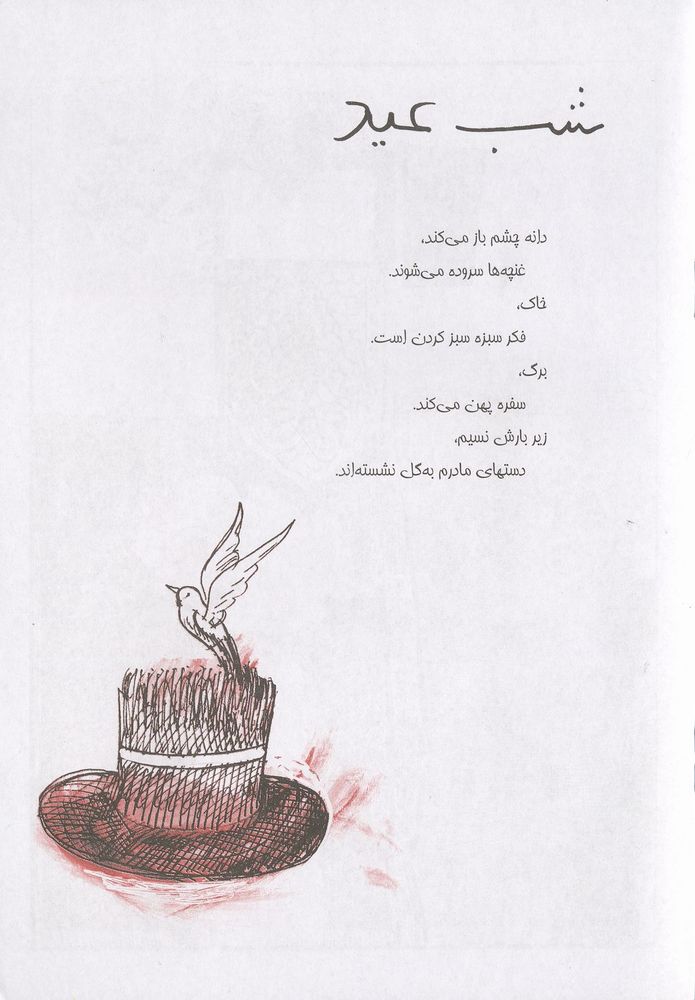 شب عید
دانه چشم باز می‌کند،
غنچه‌ها سروده می‌شوند.
خاک،
فکر سبزه سبز کردن است.
برگ،
سفره پهن می‌کند.
زیر بارش نسیم،
دستهای مادرم به‌گل نشسته‌اند.